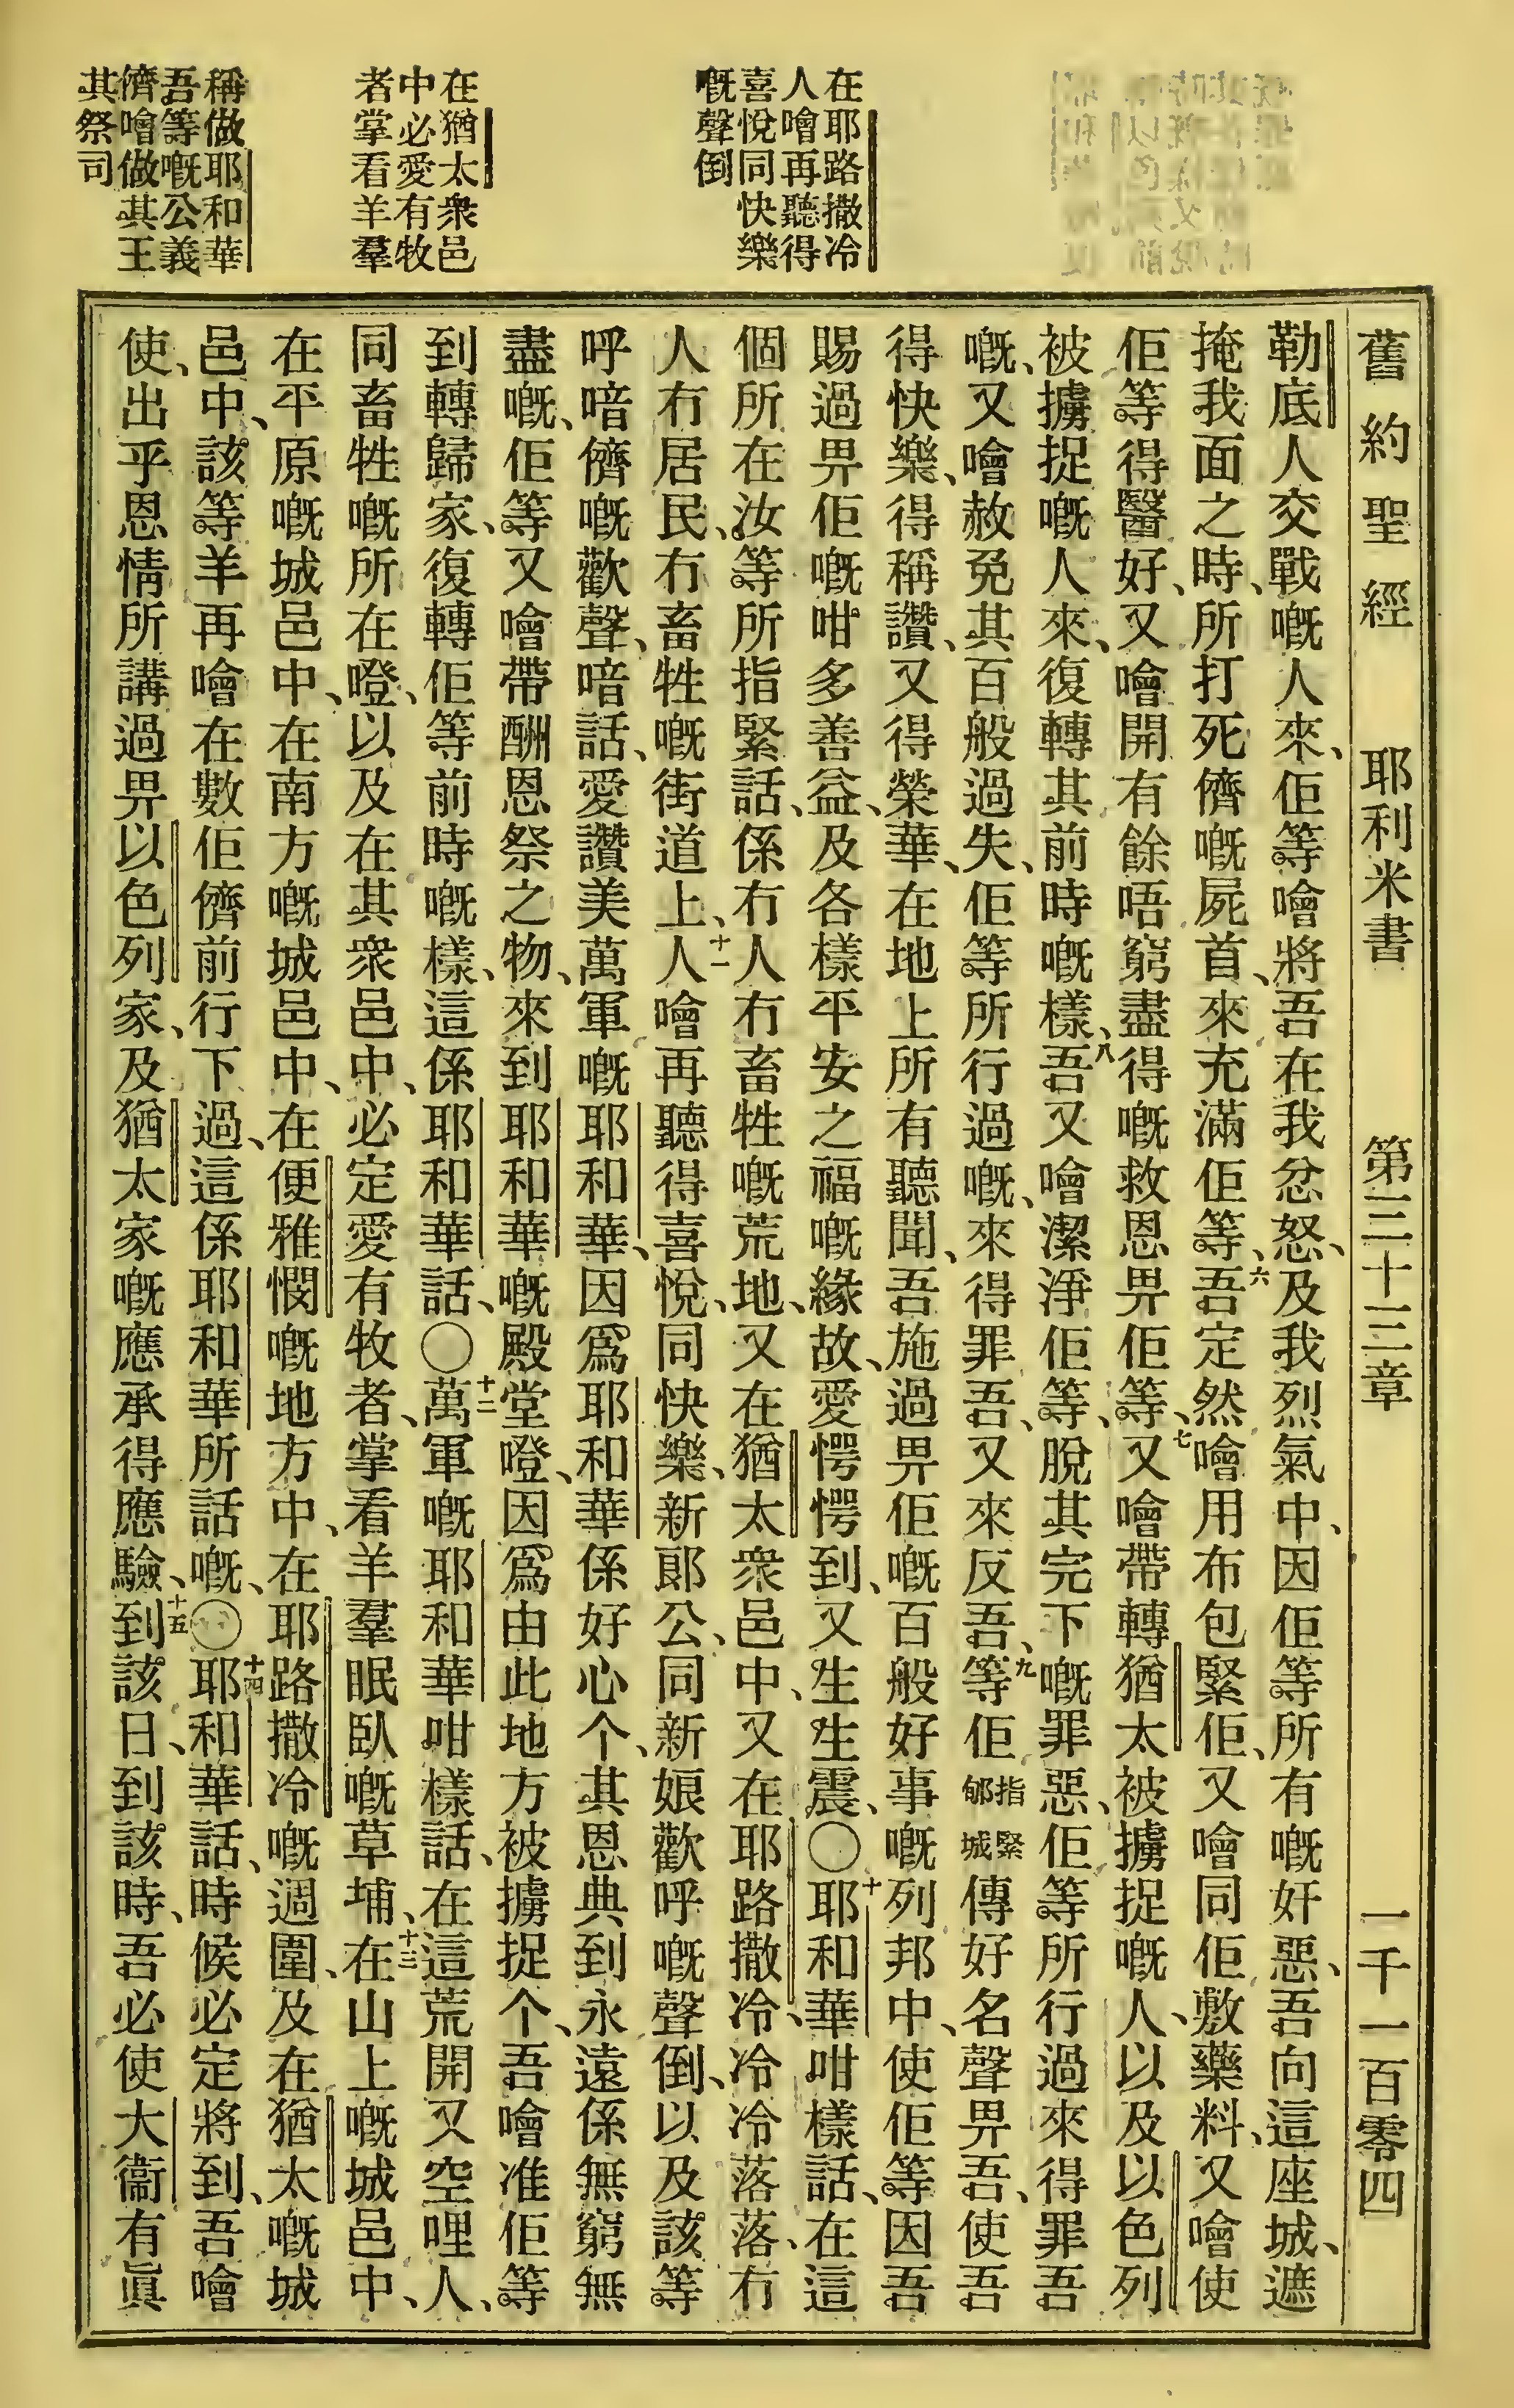 舊約聖經　耶利米書　第三十三章　一千一百零四
在耶路撒冷
人噲再聽得
喜悅同快樂
嘅聲倒
在猶太衆邑
中必愛有牧
者掌看羊羣
稱做耶和華
吾等嘅公義
儕噲做其王
其祭司
勒底人交戰嘅人來、佢等噲將吾在我忿怒、及我烈氣中、因佢等所有嘅奸惡、吾向這座城、遮
掩我面之時、所打死儕嘅屍首、來充滿佢等、六吾定然噲用布包緊佢、又噲同佢敷藥料、又噲使
佢等得醫好、又噲開有餘唔窮盡得嘅救恩畀佢等、七又噲帶轉猶太被擄捉嘅人、以及以色列
被擄捉嘅人來、復轉其前時嘅樣、八吾又噲潔淨佢等、脫其完下嘅罪惡、佢等所行過來得罪吾
嘅、又噲赦免其百般過失、佢等所行過嘅、來得罪吾、又來反吾、九等佢指緊郇城傳好名聲畀吾、使吾
得快樂、得稱讚、又得榮華、在地上所有聽聞、吾施過畀佢嘅百般好事嘅列邦中、使佢等因吾
賜過畀佢嘅咁多善益、及各樣平安之福嘅緣故、愛愕愕到、又生生震、〇十耶和華咁樣話、在這
個所在、汝等所指緊話、係冇人冇畜牲嘅荒地、又在猶太衆邑中、又在耶路撒冷、冷冷落落、冇
人冇居民、冇畜牲嘅街道上、十一人噲再聽得喜悅、同快樂、新郞公、同新娘歡呼嘅聲倒、以及該等
呼喑儕嘅歡聲、喑話、愛讚美萬軍嘅耶和華、因爲耶和華係好心个、其恩典到永遠係無窮無
盡嘅、佢等又噲帶酬恩祭之物、來到耶和華嘅殿堂噔、因爲由此地方被擄捉个、吾噲准佢等
到轉歸家、復轉佢等前時嘅樣、這係耶和華話、〇十二萬軍嘅耶和華咁樣話、在這荒開又空哩人、
同畜牲嘅所在噔、以及在其衆邑中、必定愛有牧者、掌看羊羣眠臥嘅草埔、十三在山上嘅城邑中、
在平原嘅城邑中、在南方嘅城邑中、在便雅憫嘅地方中、在耶路撒冷嘅週圍、及在猶太嘅城
邑中、該等羊再噲在數佢儕前行下過、這係耶和華所話嘅、〇十四耶和華話、時候必定將到、吾噲
使、出乎恩情所講過畀以色列家、及猶太家嘅應承得應驗、十五到該日、到該時、吾必使大衞有眞